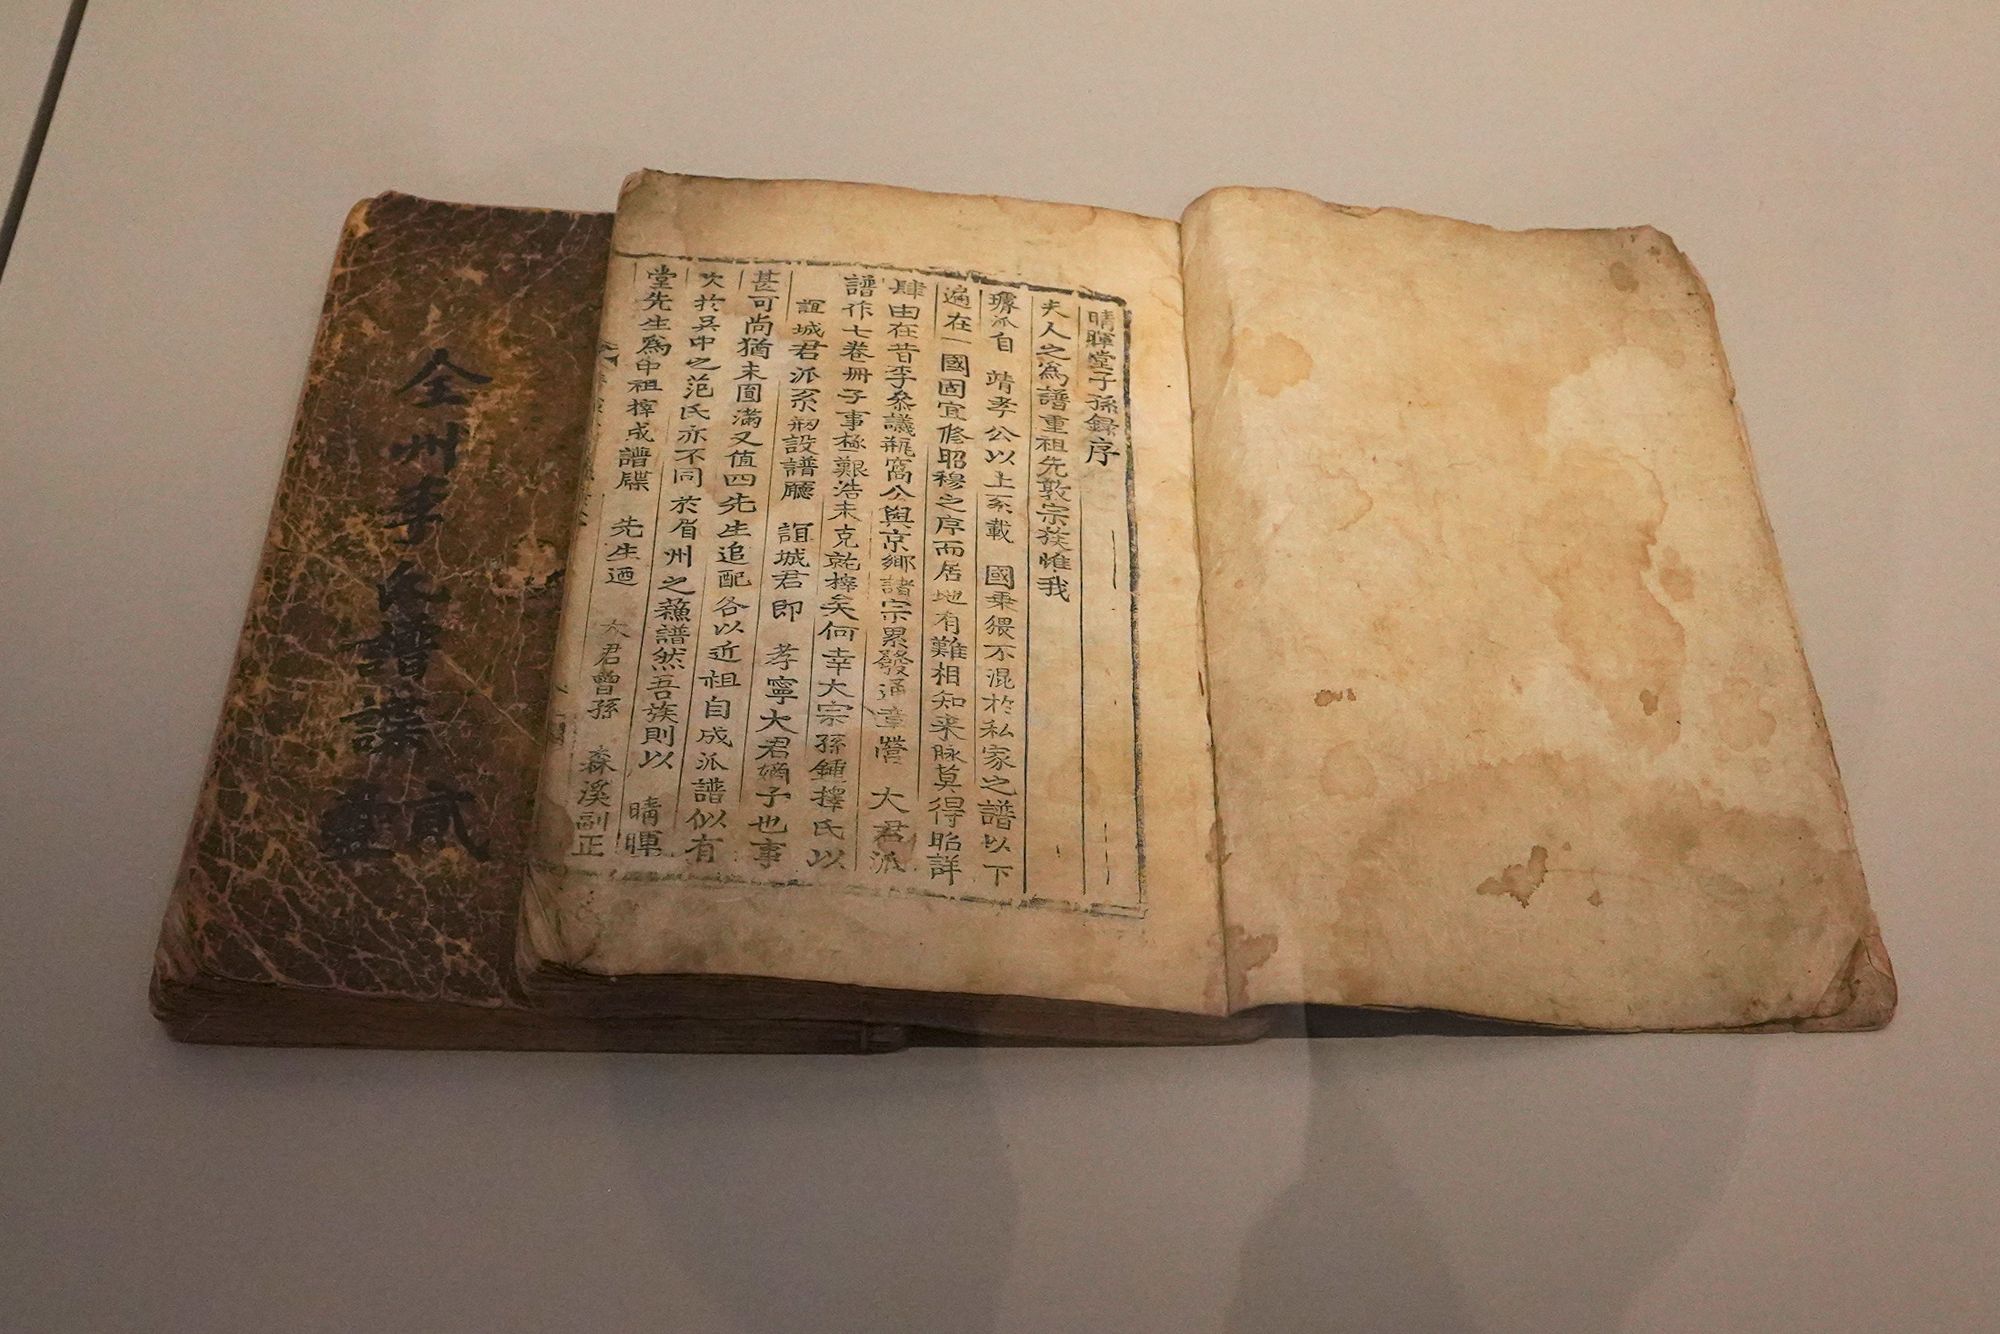 晴暉堂子孫録序
夫人之為譜重祖先敦宗族惟我
璿派自 靖孝公以上系載 國乗猥不混於私家之譜以下
遍在一國固宜修昭穆之序而居地有難相知來脉莫得昭詳
肆由在昔李叅議瓶窩公與京鄉諸宗累發通章營 大君派
譜作七卷冊子事極艱浩未克就榟矣何幸大宗孫鍾擇氏以
誼城君派系刱設譜廳 誼城君即 孝寧大君嫡子也事
甚可尚猶未圓滿又值四先生追配各以近祖自成派譜似有
次於吳中之范氏亦不同於眉州之蘓譜然吾族則以 晴暉
堂先生為中祖榟成譜牒 先生迺 大君曾孫 森溪副正
全州李氏譜諜 貳